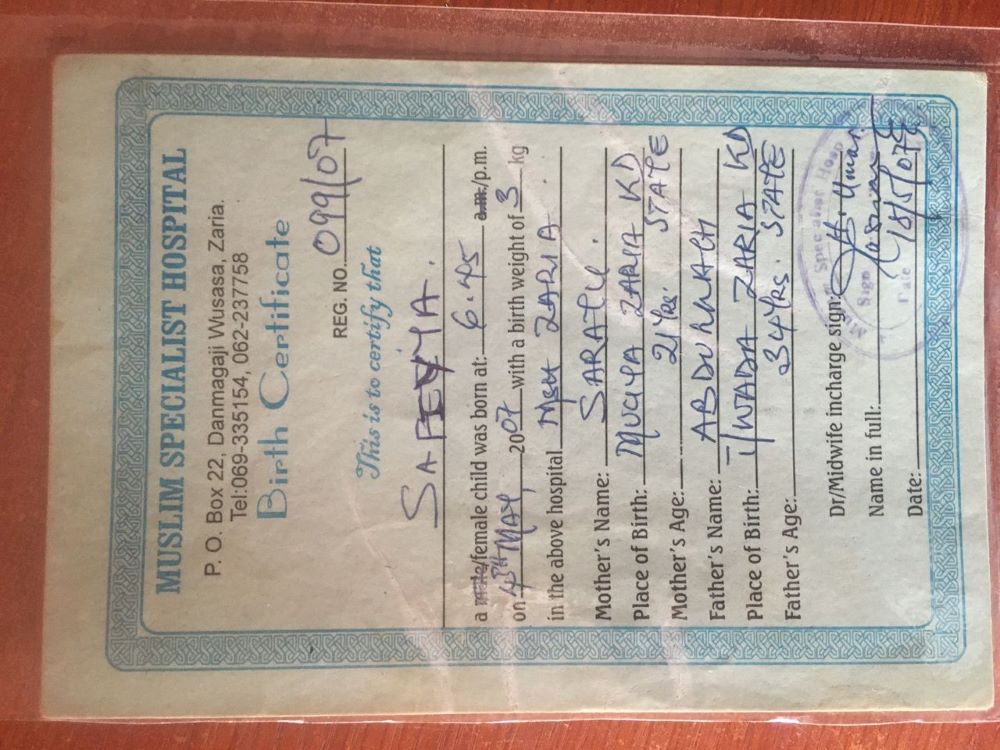 MUSLIM SPECIALIST HOSPITAL
P. O. Box 22, Danmagaji Wusasa, Zaria.
Tel:069-335154, 062-237758
Birth Certificate
REG. NO. 099/07
This is to certify that
a male/female child was born at: 6.45 a.m./p.m.
on MAY, 2007 with a birth weight of 3 kg
in the above hospital MSH ZARIA.
Mother's Name: SARATU.
Place of Birth: MUCIYA ZARIA KD STATE
Mother's Age: 21 Yrs.
Father's Name: ABDULLAHI
Place of Birth: T/WADA ZARIA KD STATE
Father's Age: 34 Yrs.
Dr/Midwife incharge sign: H. Umar
Name in full:
Date: 18/5/07
Specialist Hosp
Sign
Date